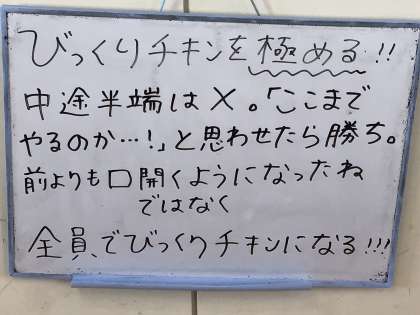 びっくりチキンを極める!!
中途半端は×。「ここまで
やるのか…!」と思わせたら勝ち。
前よりも口開くようになったね
ではなく
全員でびっくりチキンになる!!!